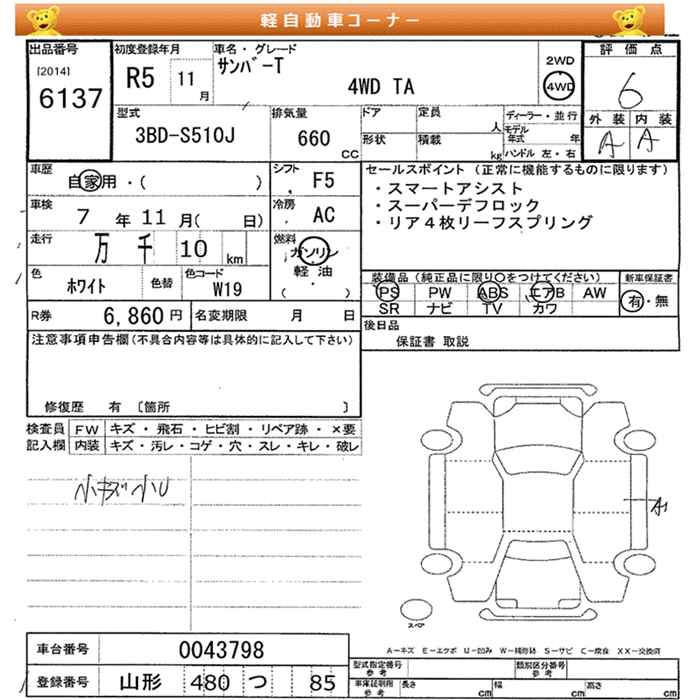 軽自動車コーナー
出品番号 初度登録年月 車名・グレード 評価点
[2014] 6137 R5 11月 サンバーT 4WD TA 2WD 4WD 6
型式 排気量 ドア 定員 人 ディーラー・並行 外装 内装
3BD-S510J 660 CC 形状 積載 kg モデル年式 年 ハンドル 左・右 A A
車歴 自家用・( ) シフト F5 セールスポイント(正常に機能するものに限ります)
・スマートアシスト
車検 7年11月( 日) 冷房 AC ・スーパーデフロック
・リア4枚リーフスプリング
走行 万千10km 燃料 ガソリン・軽油・( )
色 ホワイト 色替 色コード W19 装備品(純正品に限り○をつけてください) 新車保証書
PS PW ABS エアB AW 有・無
R券 6,860円 名変期限 月 日 SR ナビ TV カワ
注意事項申告欄(不具合内容等は具体的に記入して下さい) 後日品
保証書 取説
修復歴 有 〔箇所 〕
検査員 FW キズ・飛石・ヒビ割・リペア跡・×要
記入欄 内装 キズ・汚レ・コゲ・穴・スレ・キレ・破レ
小キズ小U
A1
スペア
A-キズ E-エクボ U-凹み W-補修跡 S-サビ C-腐食 XX-交換済
車台番号 0043798 型式指定番号 参考 類別区分番号 参考
登録番号 山形 480 つ 85 車庫証明用 参考 長さ cm 幅 cm 高さ cm